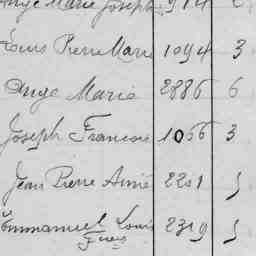 Ange Marie Joseph 914
Louis Pierre Marie 1094 3
Ange Marie 2886 6
Joseph Francois 1066 3
Jean Pierre Aimé 2201 5
Emmanuel Louis 2319 5